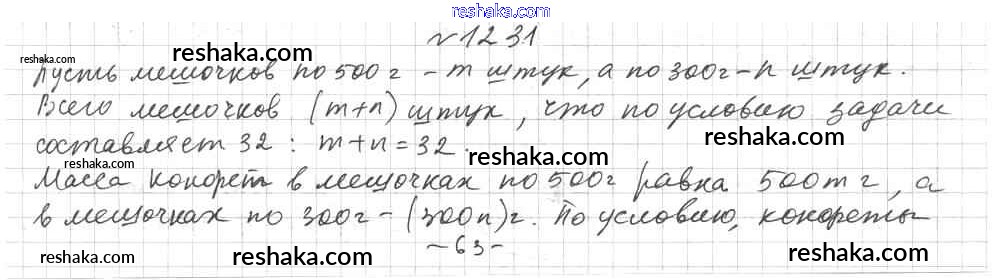 www.reshaka.com
№1231
reshaka.com
reshaka.com
Пусть мешочков по 500г - m штук, а по 300г - n штук.
Всего мешочков (m+n) штук, что по условию задачи
reshaka.com
reshaka.com
составляет 32 : m+n=32.
reshaka.com
reshaka.com
Масса конфет в мешочках по 500г равна 500m г, а
reshaka.com
в мешочках по 300г - (300n)г. По условию, конфеты
-63-
reshaka.com
reshaka.com
reshaka.com
www.reshaka.com